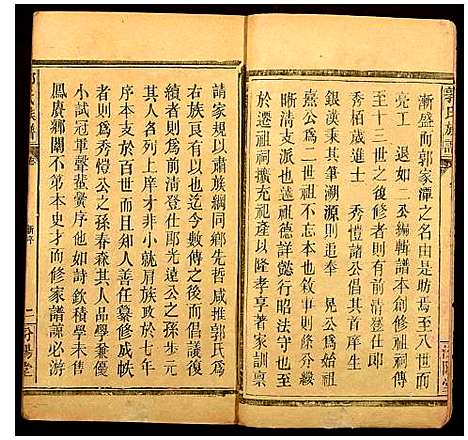 郭氏族譜
漸盛而郭家潭之名由是昉焉至八世而
亮工 退如二公編輯譜本創修祖祠傳
至十三世之後修者則有前清登仕郎
秀栢歲進士 秀愷諸公倡其若庠生
銀漢秉其筆溯源則追奉 晃公為始祖
熹公為一世祖不忘本也敘事則條分縷
晰清支派也述祖德詳懿行昭法守也至
於遷祖祠擴充祀產以隆孝享著家訓禀
請家規以肅族綱同鄉先哲咸推郭氏為
右族良有以也迄今數傳之後而倡議復
續者則為前清登仕郎光遠公之孫步元
其人名列上庠才非小就肩族政於七年
序本支於百世而且知人善任纂修成帙
者則為秀愷公之孫春森其人品學兼優
小試冠軍聲蜚黌序他如詩欽積學未售
鳳賡鄉闈不第本史才而修家譜諒必游
氏族譜
新序
二
汾陽堂